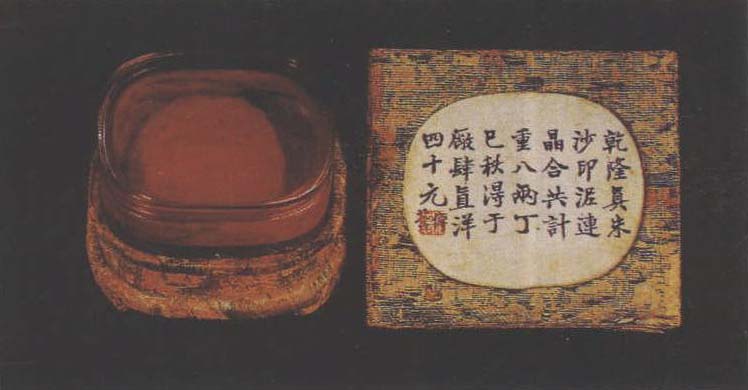 乾隆真朱
沙印泥連
晶合共計
重八兩丁
巳秋淂于
廠肆直洋
四十元